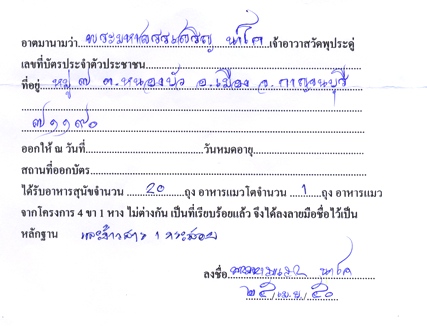 อาตมานามว่า พระมหาสรรเสริญ นาโค เจ้าอาวาสวัดพุประดู่
เลขที่บัตรประจำตัวประชาชน
ที่อยู่ หมู่ ๗ ต.หนองบัว อ.เมือง จ.กาญจนบุรี
๗๑๑๙๐
ออกให้ ณ วันที่ วันหมดอายุ
สถานที่ออกบัตร
ได้รับอาหารสุนัขจำนวน 20 ถุง อาหารแมวโตจำนวน 1 ถุง อาหารแมว
จากโครงการ 4 ขา 1 หาง ไม่ต่างกัน เป็นที่เรียบร้อยแล้ว จึงได้ลงลายมือชื่อไว้เป็น
หลักฐาน และข้าวสาร 1 กระสอบ
ลงชื่อ นาโค
๒๕/เม.ย./๕๐